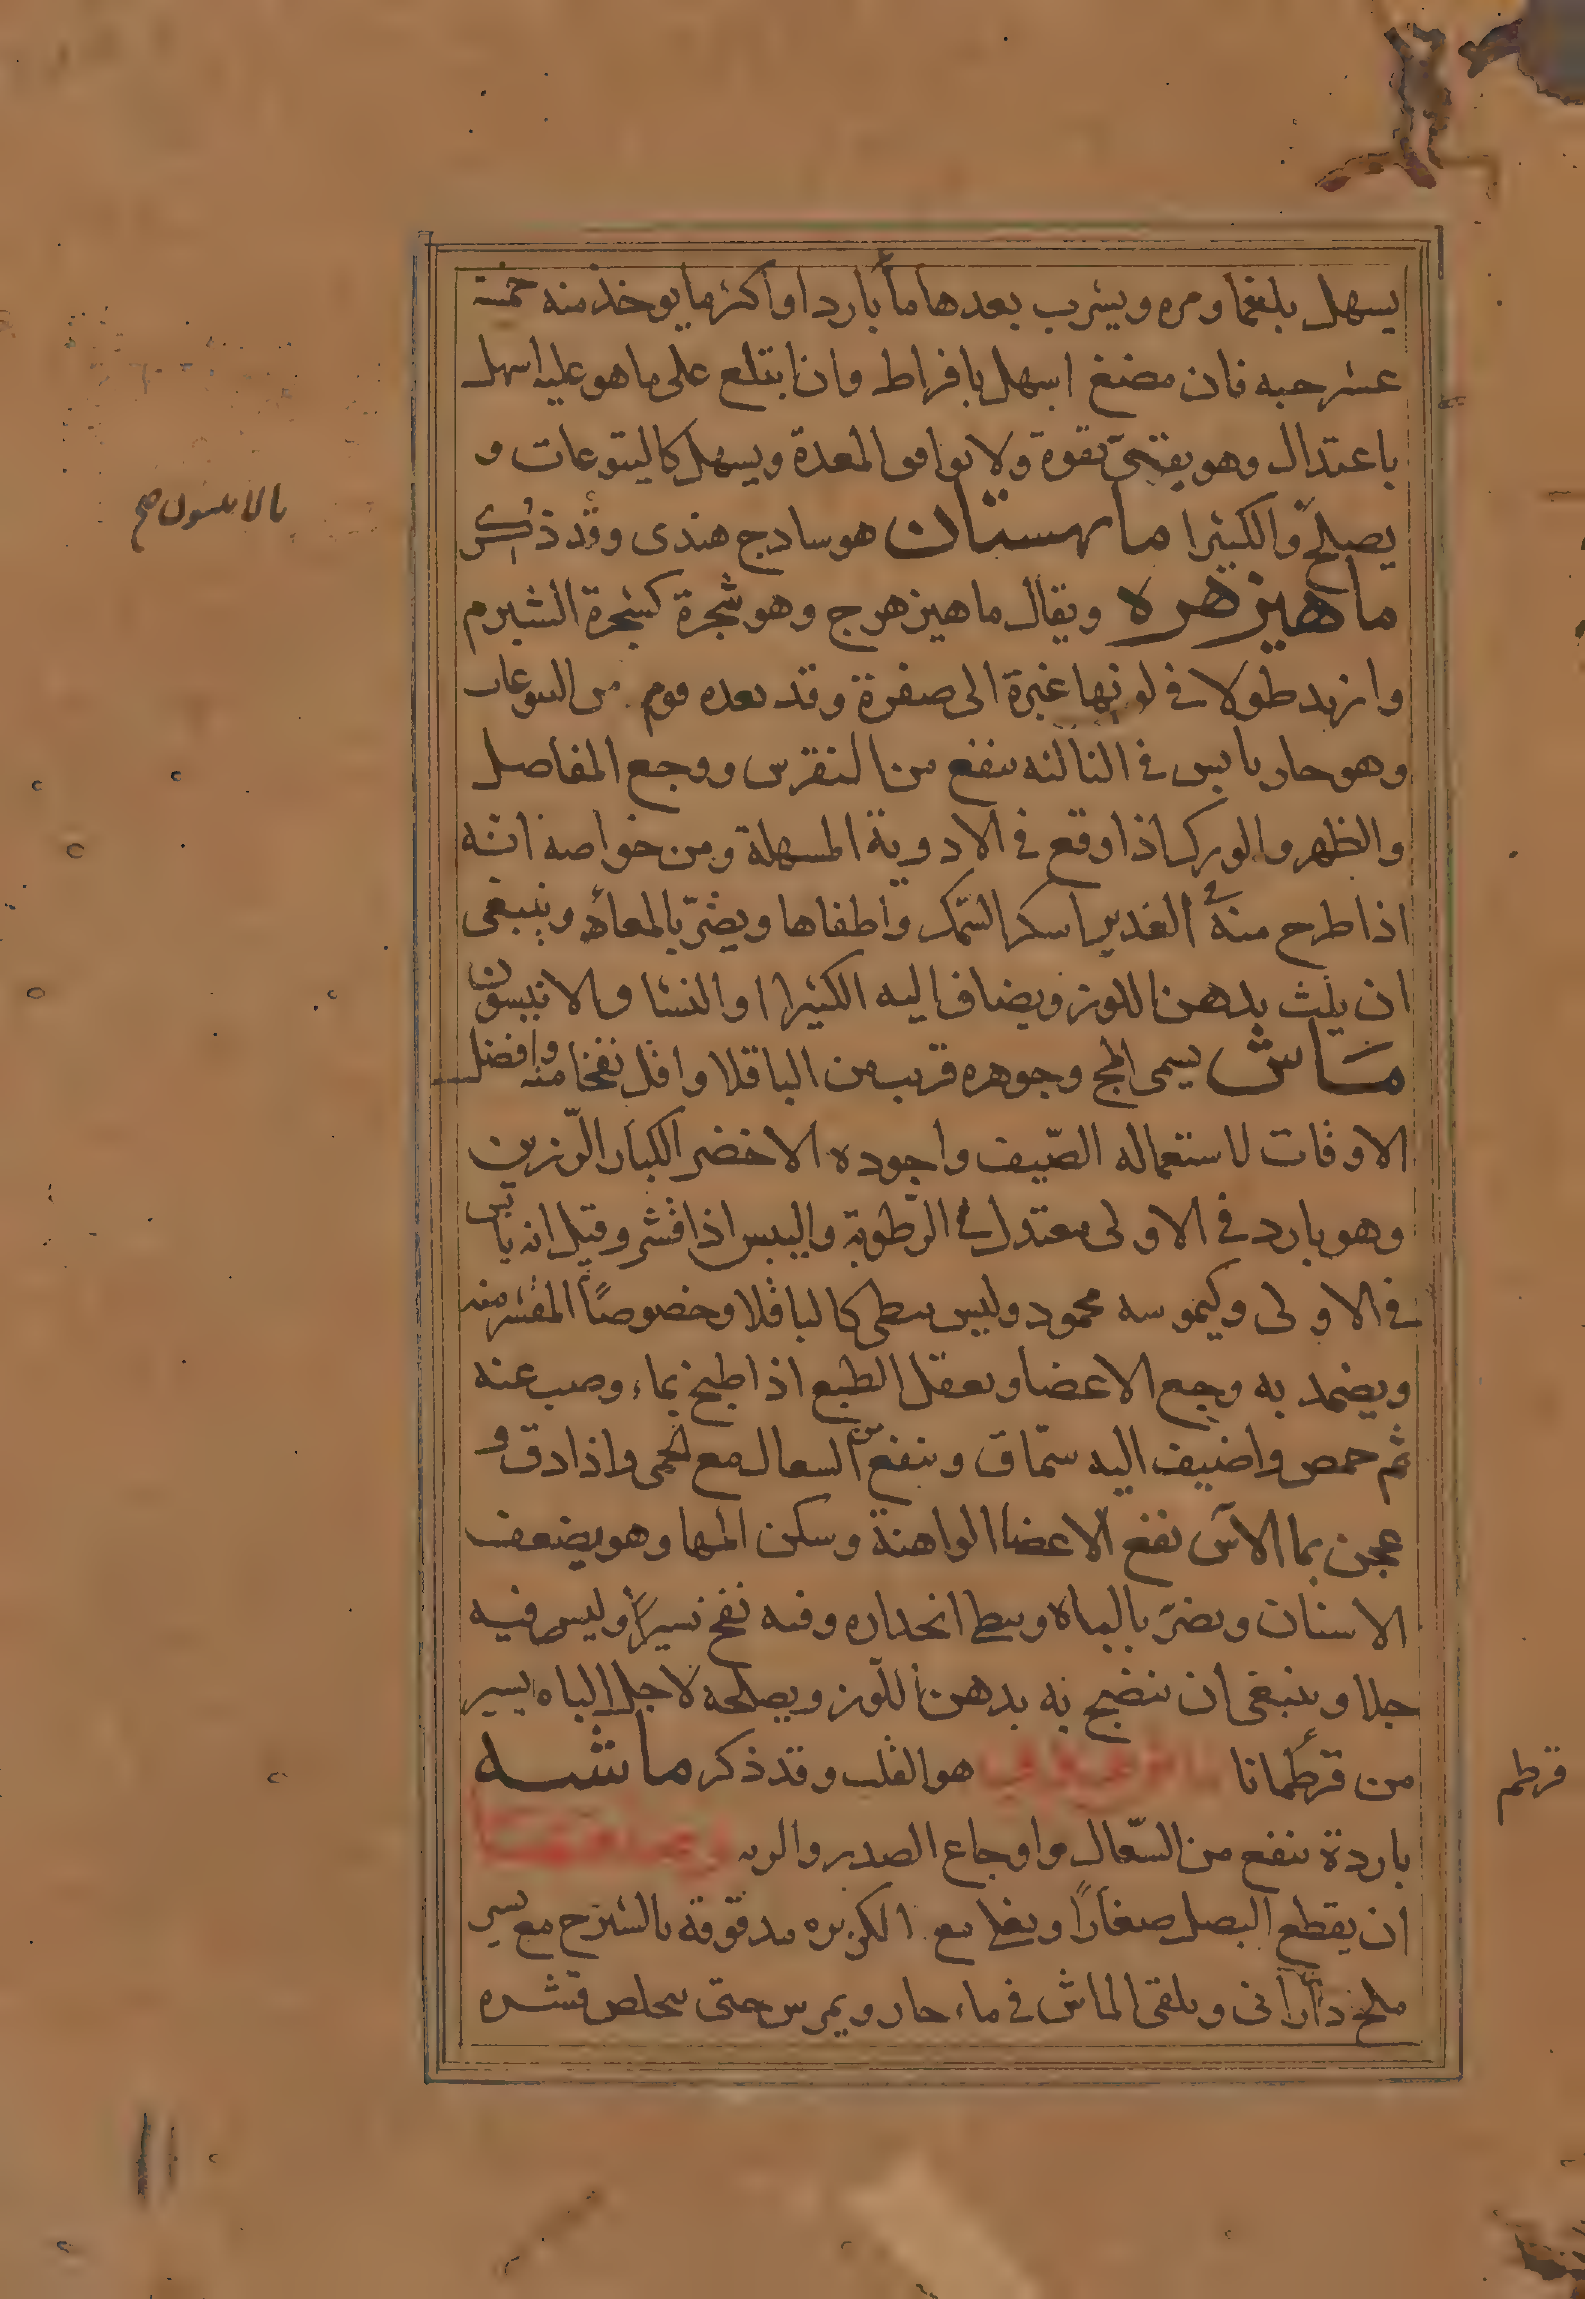 يسهل بلغما ومره ويشرب بعدها ماً باردا واكثر ما يوخذ منه خمسة
عشر حبه فان مضغ اسهل بافراط وان ابتلع على ما هو عليه اسهل
باعتدال وهو يقيّ بقوة ولا يوافق المعدة ويسهل كاليتوعات و
يصلح والكثيرا ماهستان هو سادج هندى وقد ذكر
بالانيسون صح
ماهيزهره ويقال ماهيزهرج وهو شجرة كشجرة الشبرم
وازيد طولا في لونها غبرة الى صفرة وقد يعده قوم من اليتوعات
وهو حار يابس في الثالثه ينفع من النقرس ووجع المفاصل
والظهر والورك اذا وقع في الادوية المسهلة ومن خواصه انه
اذا طرح منه في الغدير اسكر السّمك واطفاها ويضرّ بالمعاء وينبغى
ان يلت بدهن اللوز ويضاف اليه الكثيرا او النشا والانيسون
مَاش يسمى المج وجوهره قريب من الباقلا واقل نفخا منه وافضل
الاوقات لاستعماله الصّيف واجوده الاخضر الكبار الرّزين
وهو بارد في الاولى معتدل في الرّطوبة واليبس اذا قشر وقيل انه يابس
في الاولى وكيموسه محمود وليس ببطى كالباقلا وخصوصاً المقشر منه
ويضمد به وجع الاعضا ويعقل الطبع اذا طبخ بماء وصب عنه
ثم حمص واضيف اليه سمّاق وينفع من السعال مع الحمى واذا دق و
عجن بما الاس نفع الاعضا الواهنة وسكن المها وهو يضعف
الاسنان ويضرّ بالباه وببطى انحداره وفيه نفخ يسيراً وليس فيه
جلا وينبغى ان ينضج به بدهن اللّوز ويصلحه لاجل الباه يسير
من قرطمانا هو القلب وقد ذكر ماشه
قرطم
باردة ينفع من السّعال واوجاع الصدر والريه
ان يقطع البصل صغاراً ويغلى مع الكزبره مدقوقة بالشيرج مع يسير
ملح دارانى ويلقى الماش في ماء حار ويمرس حتى يتخلص قشره